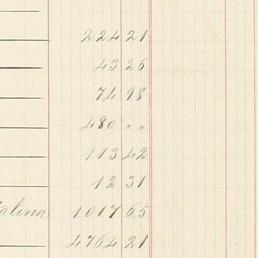 224 21
43 26
74 98
480 " "
113 42
12 31
alina 1017 65
4764 21